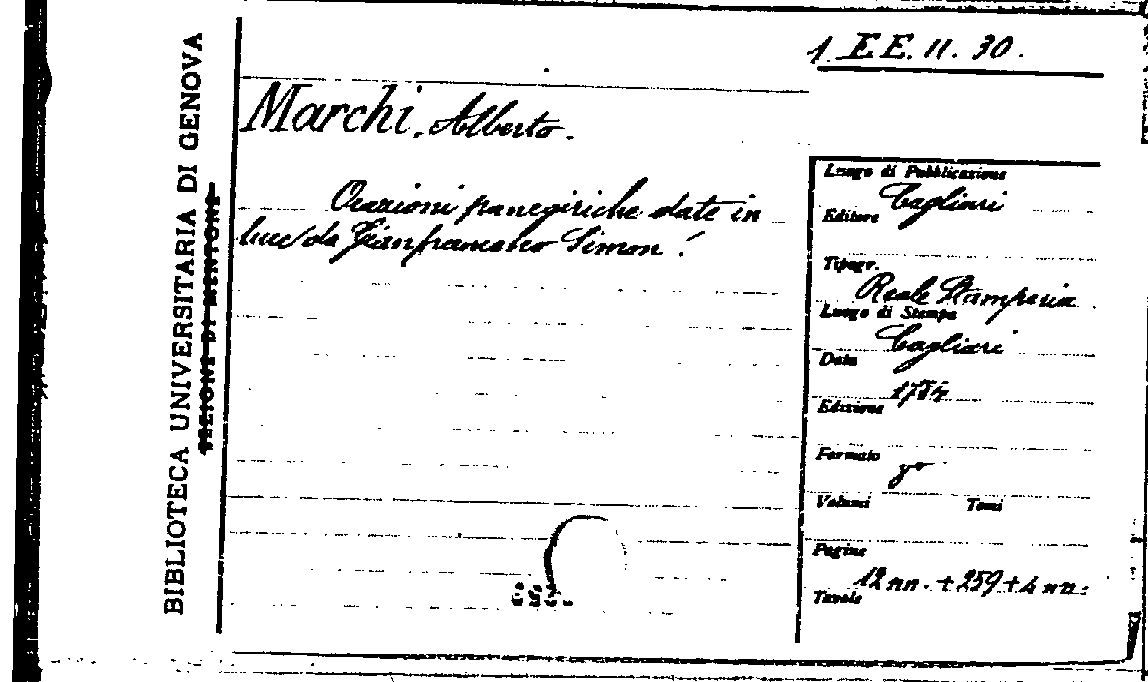 1. E E. II. 30.
BIBLIOTECA UNIVERSITARIA DI GENOVA
Marchi, Alberto.
Orazioni panegiriche date in
luce da Gianfrancesco Simon.
Luogo di Pubblicazione
Cagliari
Editore
Tipogr.
Reale Stamperia
Luogo di Stampa
Cagliari
Data
1784
Edizione
Formato
8º
Volumi Tomi
Pagine
12 nn. + 259 + 4 nn.
Tavole